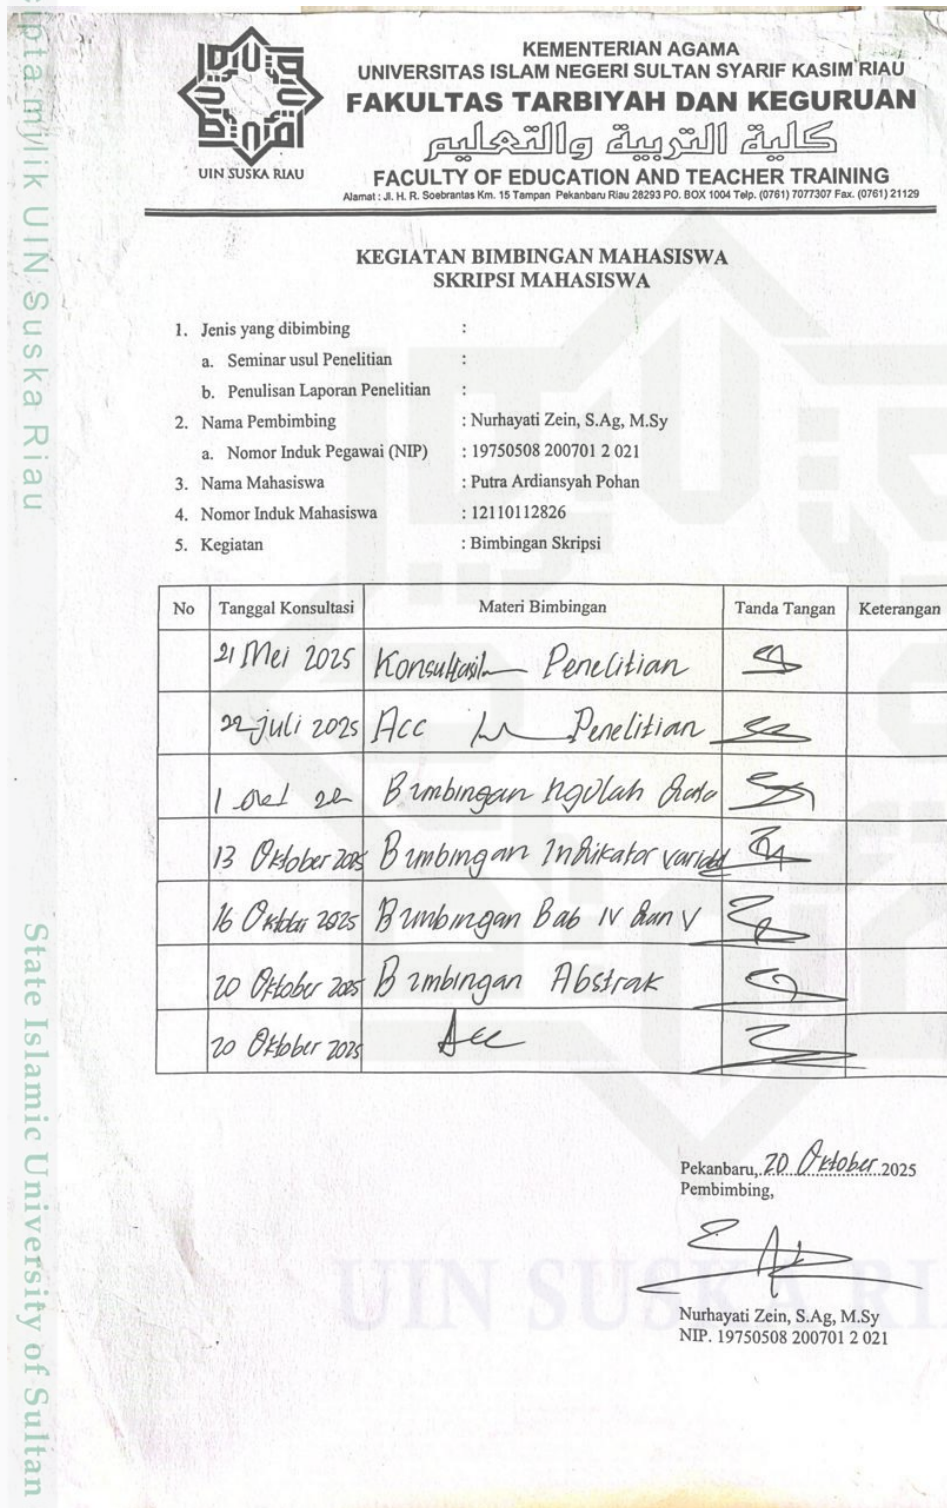 cipta milik UIN Suska Riau
State Islamic University of Sultan
UIN SUSKA RIAU
KEMENTERIAN AGAMA
UNIVERSITAS ISLAM NEGERI SULTAN SYARIF KASIM RIAU
FAKULTAS TARBIYAH DAN KEGURUAN
كلية التربية والتعليم
FACULTY OF EDUCATION AND TEACHER TRAINING
Alamat : Jl. H. R. Soebrantas Km. 15 Tampan Pekanbaru Riau 28293 PO. BOX 1004 Telp. (0761) 7077307 Fax. (0761) 21129
KEGIATAN BIMBINGAN MAHASISWA
SKRIPSI MAHASISWA
1. Jenis yang dibimbing :
a. Seminar usul Penelitian :
b. Penulisan Laporan Penelitian :
2. Nama Pembimbing : Nurhayati Zein, S.Ag, M.Sy
a. Nomor Induk Pegawai (NIP) : 19750508 200701 2 021
3. Nama Mahasiswa : Putra Ardiansyah Pohan
4. Nomor Induk Mahasiswa : 12110112826
5. Kegiatan : Bimbingan Skripsi
No Tanggal Konsultasi Materi Bimbingan Tanda Tangan Keterangan
21 Mei 2025 Penelitian
22 Juli 2025 Acc Penelitian
1 Bimbingan ngolah data
13 Oktober 2025 Bimbingan Indikator variabel
16 Oktober 2025 Bimbingan Bab IV dan V
20 Oktober 2025 Bimbingan Abstrak
20 Oktober 2025 Acc
Pekanbaru, 20 Oktober 2025
Pembimbing,
Nurhayati Zein, S.Ag, M.Sy
NIP. 19750508 200701 2 021
UIN SUSKA RI